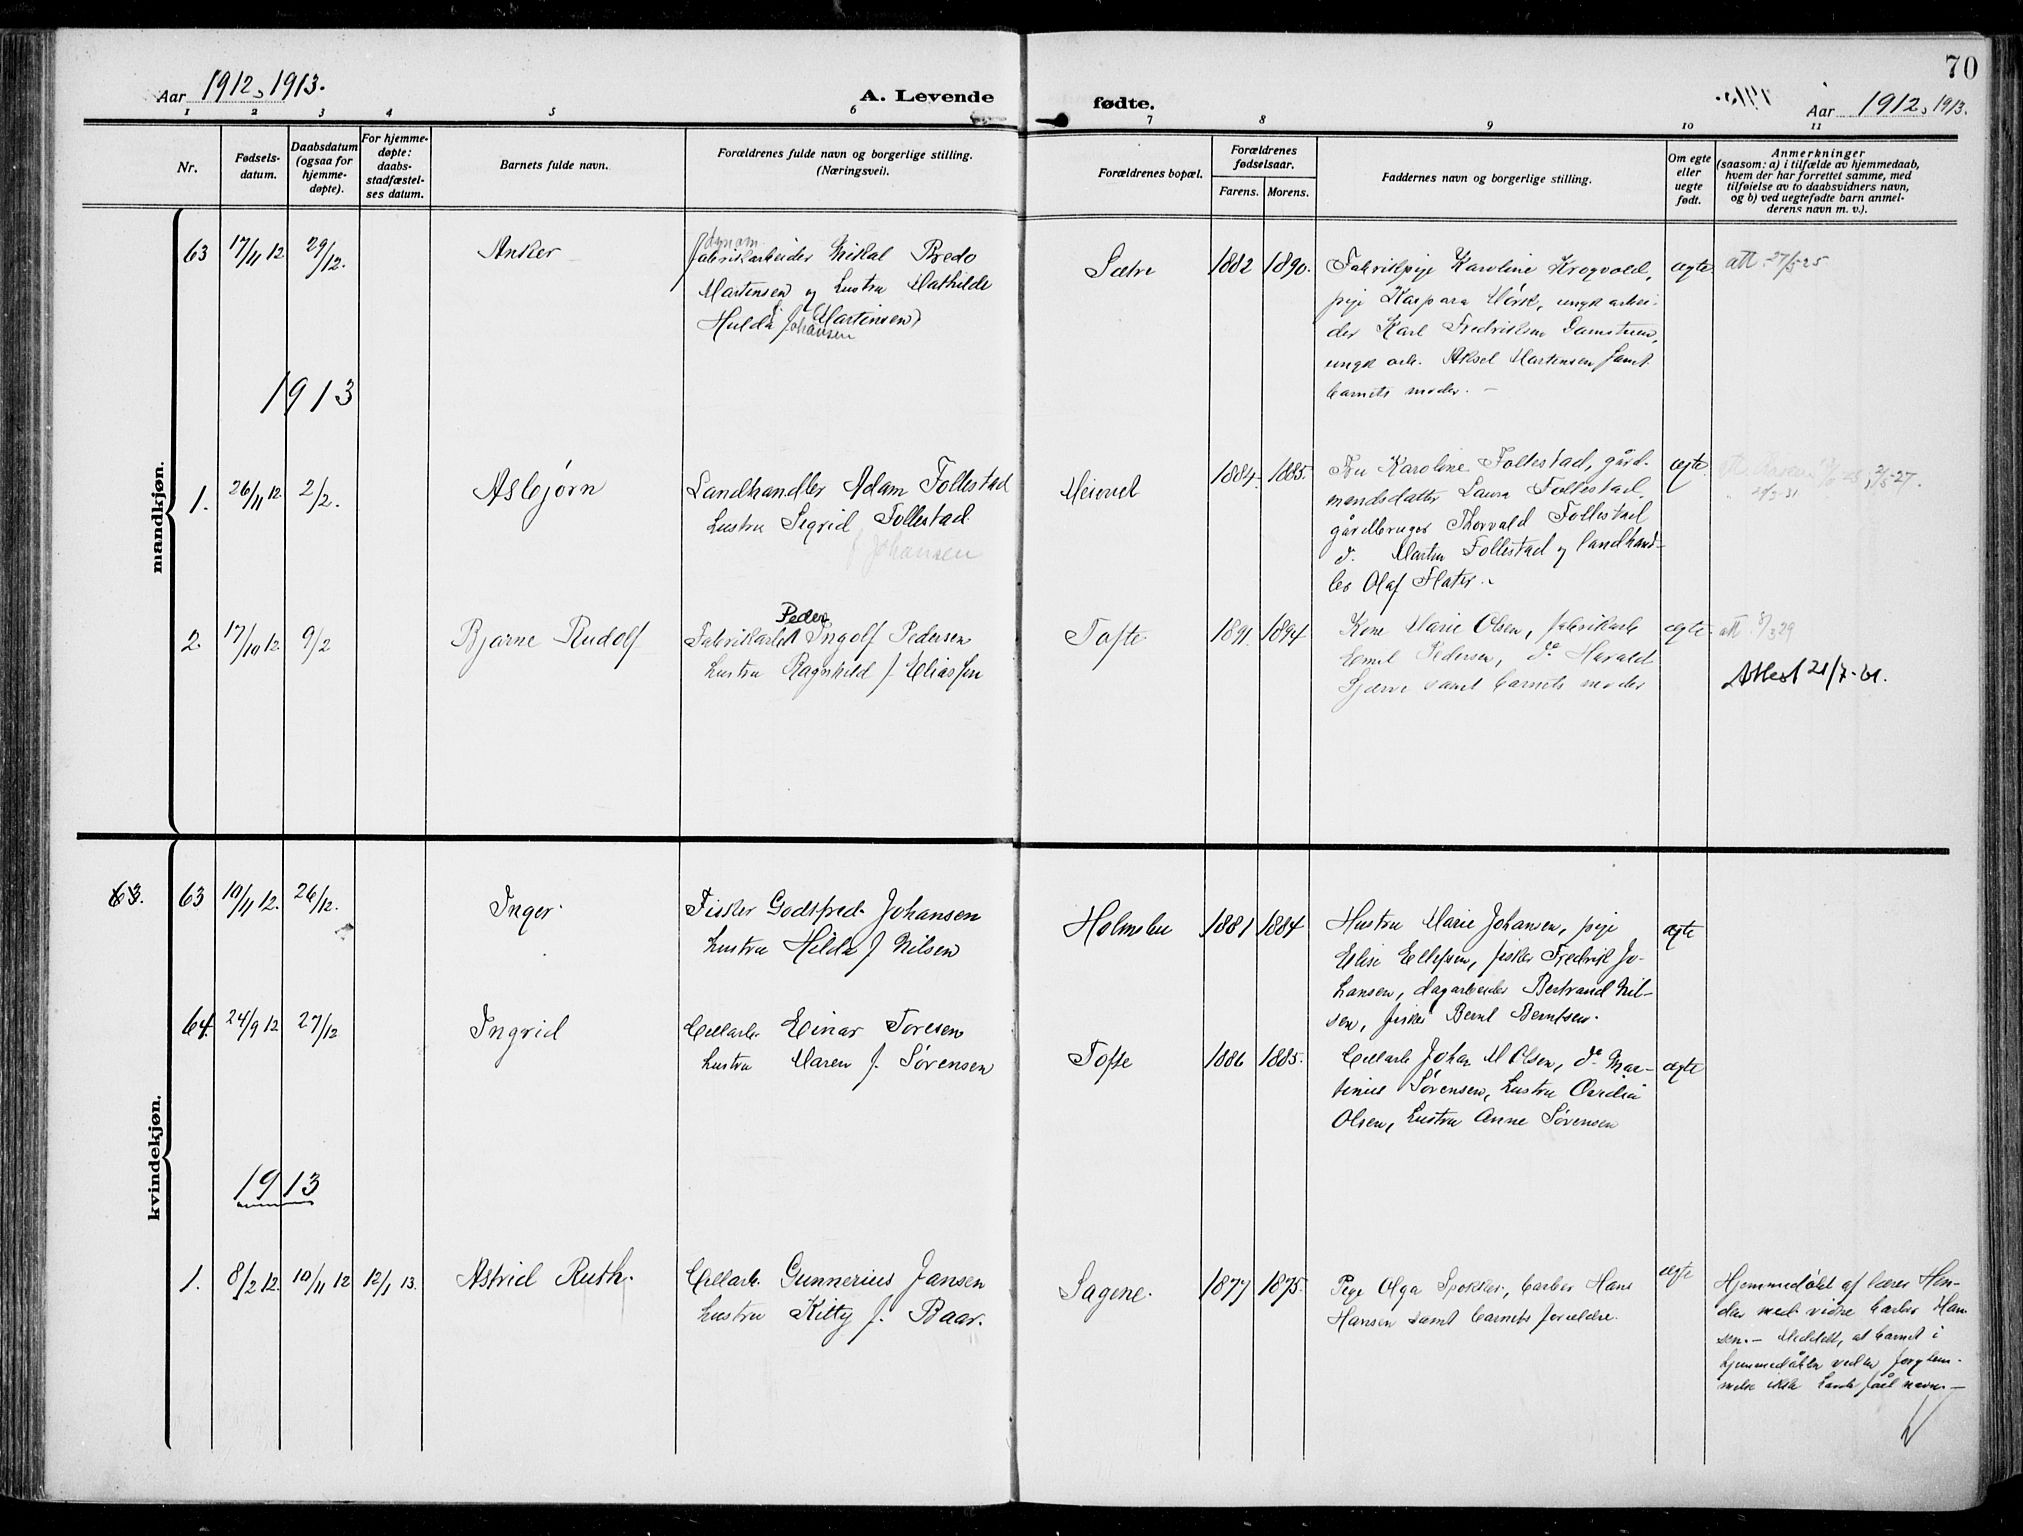 70
Aar 1912, 1913.
A. Levende
fødte.
Aar 1912, 1913.
1 2 3 4 5 6 7 8 9 10 11
Nr.
Fødsels-
datum.
Daabsdatum
(ogsaa for
hjemme-
døpte).
For hjemme-
døpte:
daabs-
stadfæstel-
ses datum.
Barnets fulde navn.
Forældrenes fulde navn og borgerlige stilling.
(Næringsvei).
Forældrenes bopæl.
Forældrenes
fødselsaar.
Farens. Morens.
Faddernes navn og borgerlige stilling.
Om egte
eller
uegte
født.
Anmerkninger
(saasom: a) i tilfælde av hjemmedaab,
hvem der har forrettet samme, med
tilføielse av to daabsvidners navn,
og b) ved uegtefødte barn anmel-
derens navn m. v.).
mandkjøn.
63 17/11 12 29/12. Anker
dynam.
Fabrikarbeider Mikal Bredo
Martensen og hustru Mathilde
Hulda f. Martinsen)
Johansen
Sætre 1882 1890.
Fabrikpige Karoline Krogvold,
pige Kaspara Mørk, ungk. arbei-
der Karl Fredriksen Damstuen,
ungk arb. Aksel Martensen samt
barnets moder. —
ægte.
att. 27/5 25
1913
1. 26/11 12 2/2. Asbjørn
Landhandler Adam Follestad
hustru Sigrid Follestad
f Johansen
1884. 1885.
Fru Karoline Follestad, gård-
mandsdatter Laura Follestad,
gårdbruger Thorvald Follestad
do. Martin Follestad og landhand-
ler Olaf Flater.
ægte
2 17/10 12 9/2 Bjarne Rudolf
Peder
Fabrikarb Ingolf Pedersen
hustru Ragnhild f Eliassen
Tofte 1891. 1894
Kone Marie Olsen, fabrikarb
Emil Pedersen, do Harald
samt barnets moder
ægte.
att. 8/3 29
Attest 21/7-61.
kvindekjøn.
63. 63 10/11 12. 26/12. Inger.
Fisker Godtfred Johansen
hustru Hilda f Nilsen
Holmsbu 1881 1884
Hustru Marie Johansen, pige
Elise Ellefsen, fisker Fredrik Jo-
hansen, dagarbeider Bertrand Nil-
sen, fisker Bernt Berntsen.
ægte
64. 24/9 12 27/12 Ingrid
Cellarb. Einar Toresen
hustru Maren f. Sørensen
Tofte 1886 1885.
Cellarb Johan M Olsen, do Mar-
tinius Sørensen, hustru
Olsen, hustru Anne Sørensen
ægte
1913
1. 8/2 12. 10/11 12 12/1 13. Astrid Ruth.
Cellarb. Gunnerius Jansen
hustru Kitty f. Baar.
Sagene. 1877 1875.
Pige Olga Spokkler, barber Hans
Hansen samt barnets forældre.
ægte
Hjemmedøbt af lærer Hen-
der med vidne barber Han-
sen. — Meddelt, at barnet i
hjemmedåben ved en forglem-
melse ikke havde fået navn. —